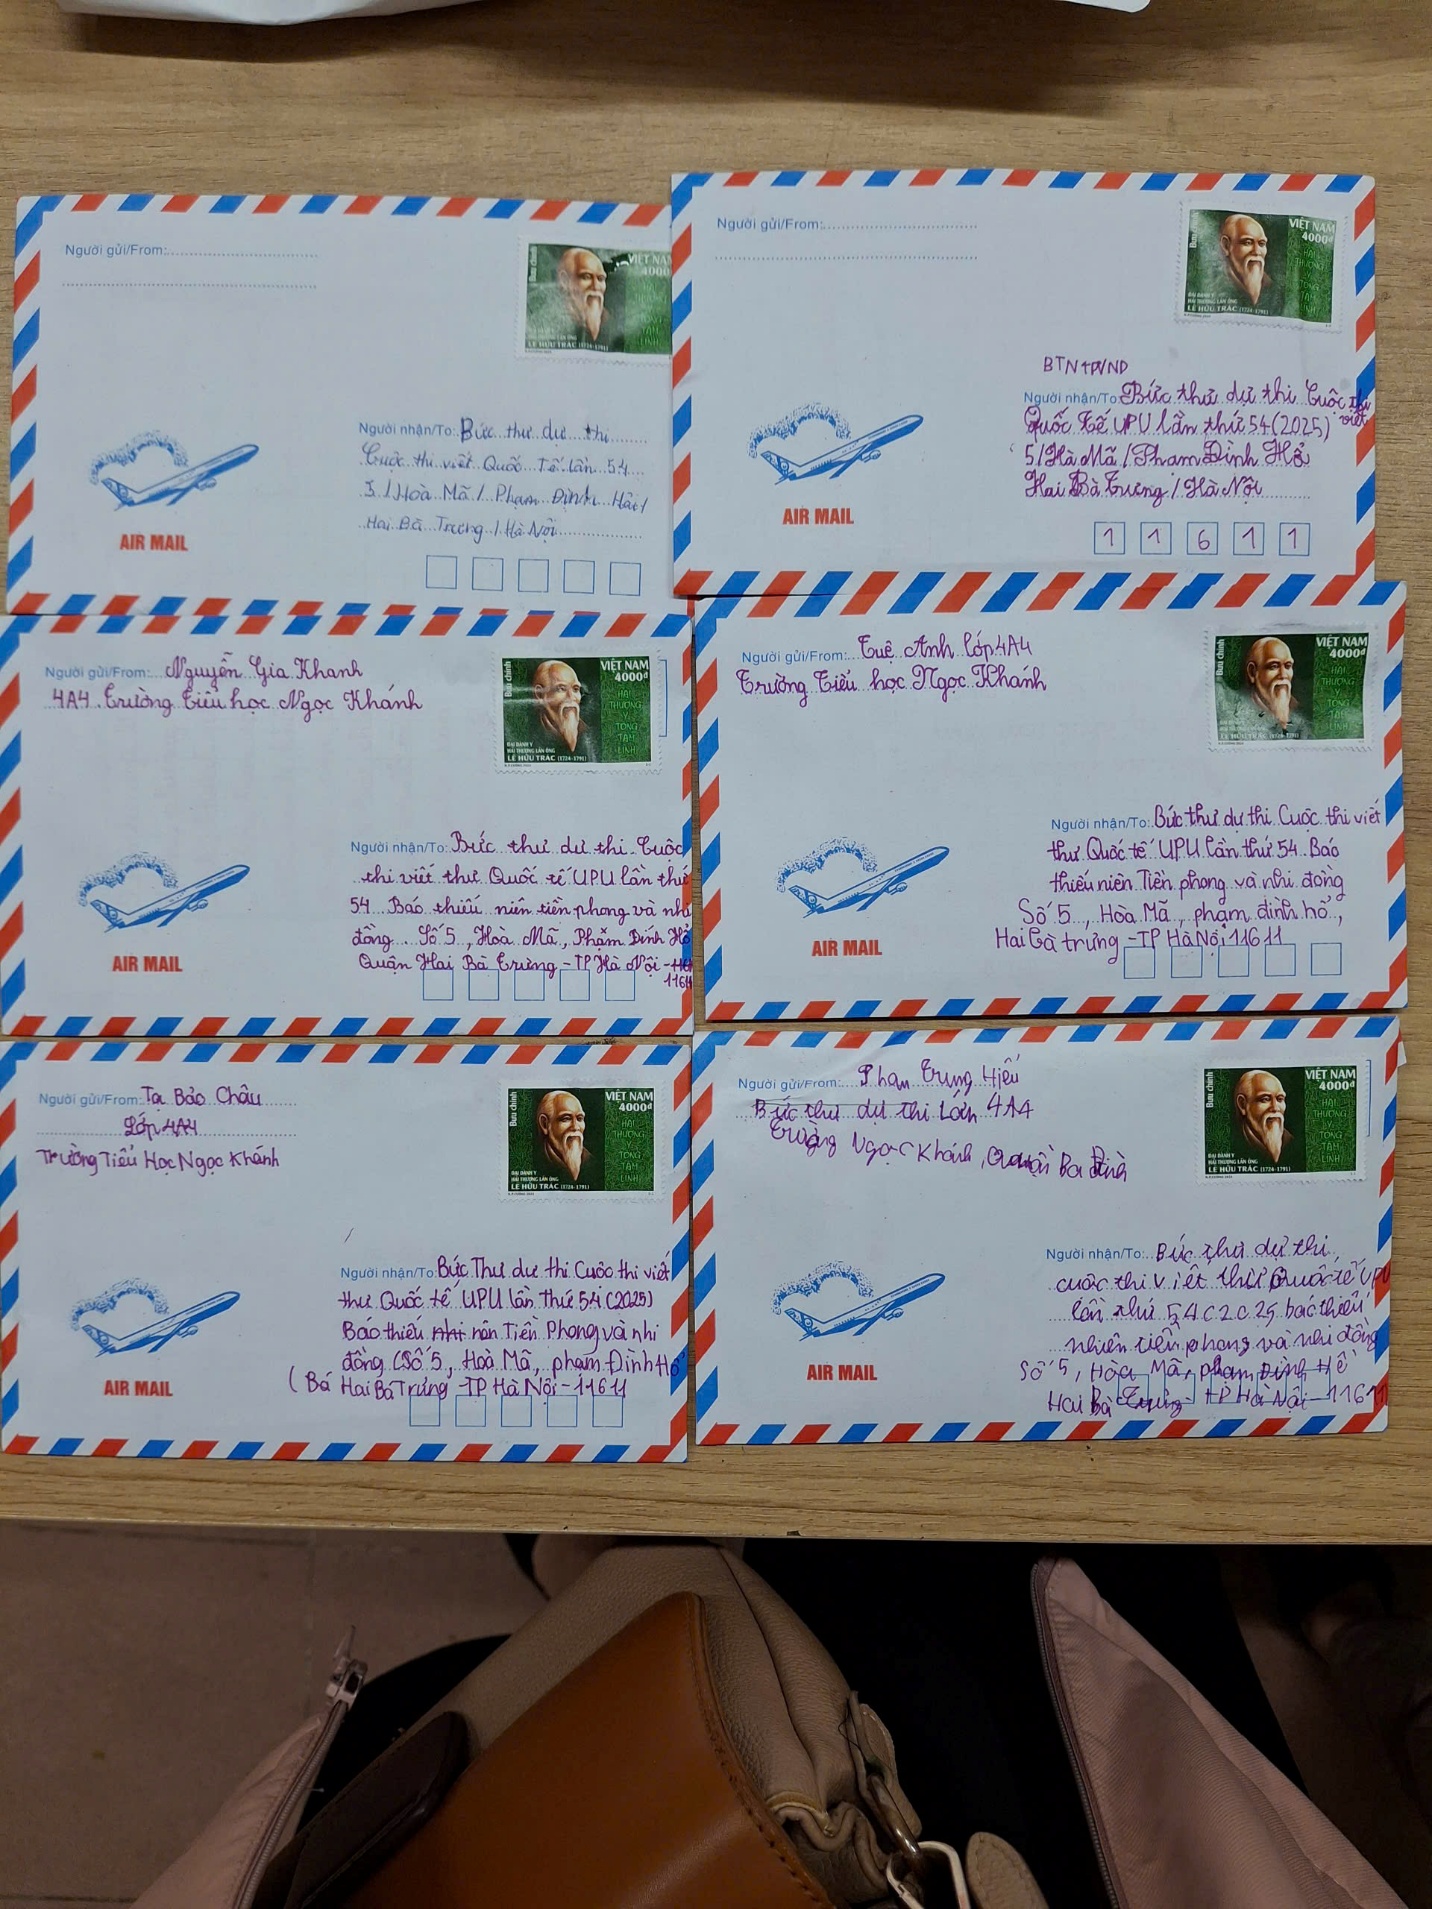 Người gửi/From:
Bưu chính
VIỆT NAM
4000
HẢI THƯỢNG Y TÔNG TÂM LĨNH
ĐẠI DANH Y
HẢI THƯỢNG LÃN ÔNG
LÊ HỮU TRÁC (1724-1791)
Người nhận/To: Bức thư dự thi
Cuộc thi viết Quốc Tế lần 54
5 / Hoà Mã / Phạm Định Hải /
Hai Bà Trương / Hà Nội
AIR MAIL
Người gửi/From:
Bưu chính
VIỆT NAM
4000đ
HẢI THƯỢNG Y TÔNG TÂM LĨNH
ĐẠI DANH Y
HẢI THƯỢNG LÃN ÔNG
LÊ HỮU TRÁC (1724-1791)
BTNTPVNĐ
Người nhận/To: Bức thư dự thi Cuộc thi
viết
Quốc Tế UPU lần thứ 54 (2025)
5 / Hà Mã / Phạm Đình Hổ
Hai Bà Trưng / Hà Nội
1 1 6 1 1
AIR MAIL
Người gửi/From: Nguyễn Gia Khanh
4A4 Trường Tiểu học Ngọc Khánh
Bưu chính
VIỆT NAM
4000đ
HẢI THƯỢNG Y TÔNG TÂM LĨNH
ĐẠI DANH Y
HẢI THƯỢNG LÃN ÔNG
LÊ HỮU TRÁC (1724-1791)
Người nhận/To: Bức thư dự thi Cuộc
thi viết thư Quốc tế UPU lần thứ
54 Báo thiếu niên tiền phong và nhi
đồng Số 5, Hoà Mã, Phạm Đính Hổ
Quận Hai Bà Trưng - TP Hà Nội -
11611
AIR MAIL
Người gửi/From: Tuệ Anh lớp 4A4
Trường Tiểu học Ngọc Khánh
Bưu chính
VIỆT NAM
4000đ
HẢI THƯỢNG Y TÔNG TÂM LĨNH
ĐẠI DANH Y
HẢI THƯỢNG LÃN ÔNG
LÊ HỮU TRÁC (1724-1791)
Người nhận/To: Bức thư dự thi Cuộc thi viết
thư Quốc tế UPU lần thứ 54 Báo
thiếu niên Tiền phong và nhi đồng
Số 5, Hòa Mã, phạm đình hổ,
Hai Bà trưng - TP Hà Nội 11611
AIR MAIL
Người gửi/From: Tạ Bảo Châu
Lớp 4A4
Trường Tiểu Học Ngọc Khánh
Bưu chính
VIỆT NAM
4000đ
HẢI THƯỢNG Y TÔNG TÂM LĨNH
ĐẠI DANH Y
HẢI THƯỢNG LÃN ÔNG
LÊ HỮU TRÁC (1724-1791)
Người nhận/To: Bức Thư dự thi Cuộc thi viết
thư Quốc tế UPU lần thứ 54 (2025)
Báo thiếu nhi niên Tiền Phong và nhi
đồng (Số 5, Hoà Mã, phạm Đình Hổ
( Bá Hai Bà Trưng - TP Hà Nội - 11611
AIR MAIL
Người gửi/From: Phan Trung Hiếu
Bức thư dự thi Lớn 4A4
Trường Ngọc Khánh, Quận Ba Đình
Bưu chính
VIỆT NAM
4000đ
HẢI THƯỢNG Y TÔNG TÂM LĨNH
ĐẠI DANH Y
HẢI THƯỢNG LÃN ÔNG
LÊ HỮU TRÁC (1724-1791)
Người nhận/To: Bức thư dự thi
cuộc thi viết thư Quốc tế UPU
lần thứ 54 (2025 báo thiếu
nhiên tiền phong và nhi đồng
Số 5, Hòa Mã, phạm Đình Hề
Hai Bà Trưng TP Hà Nội - 11611
AIR MAIL